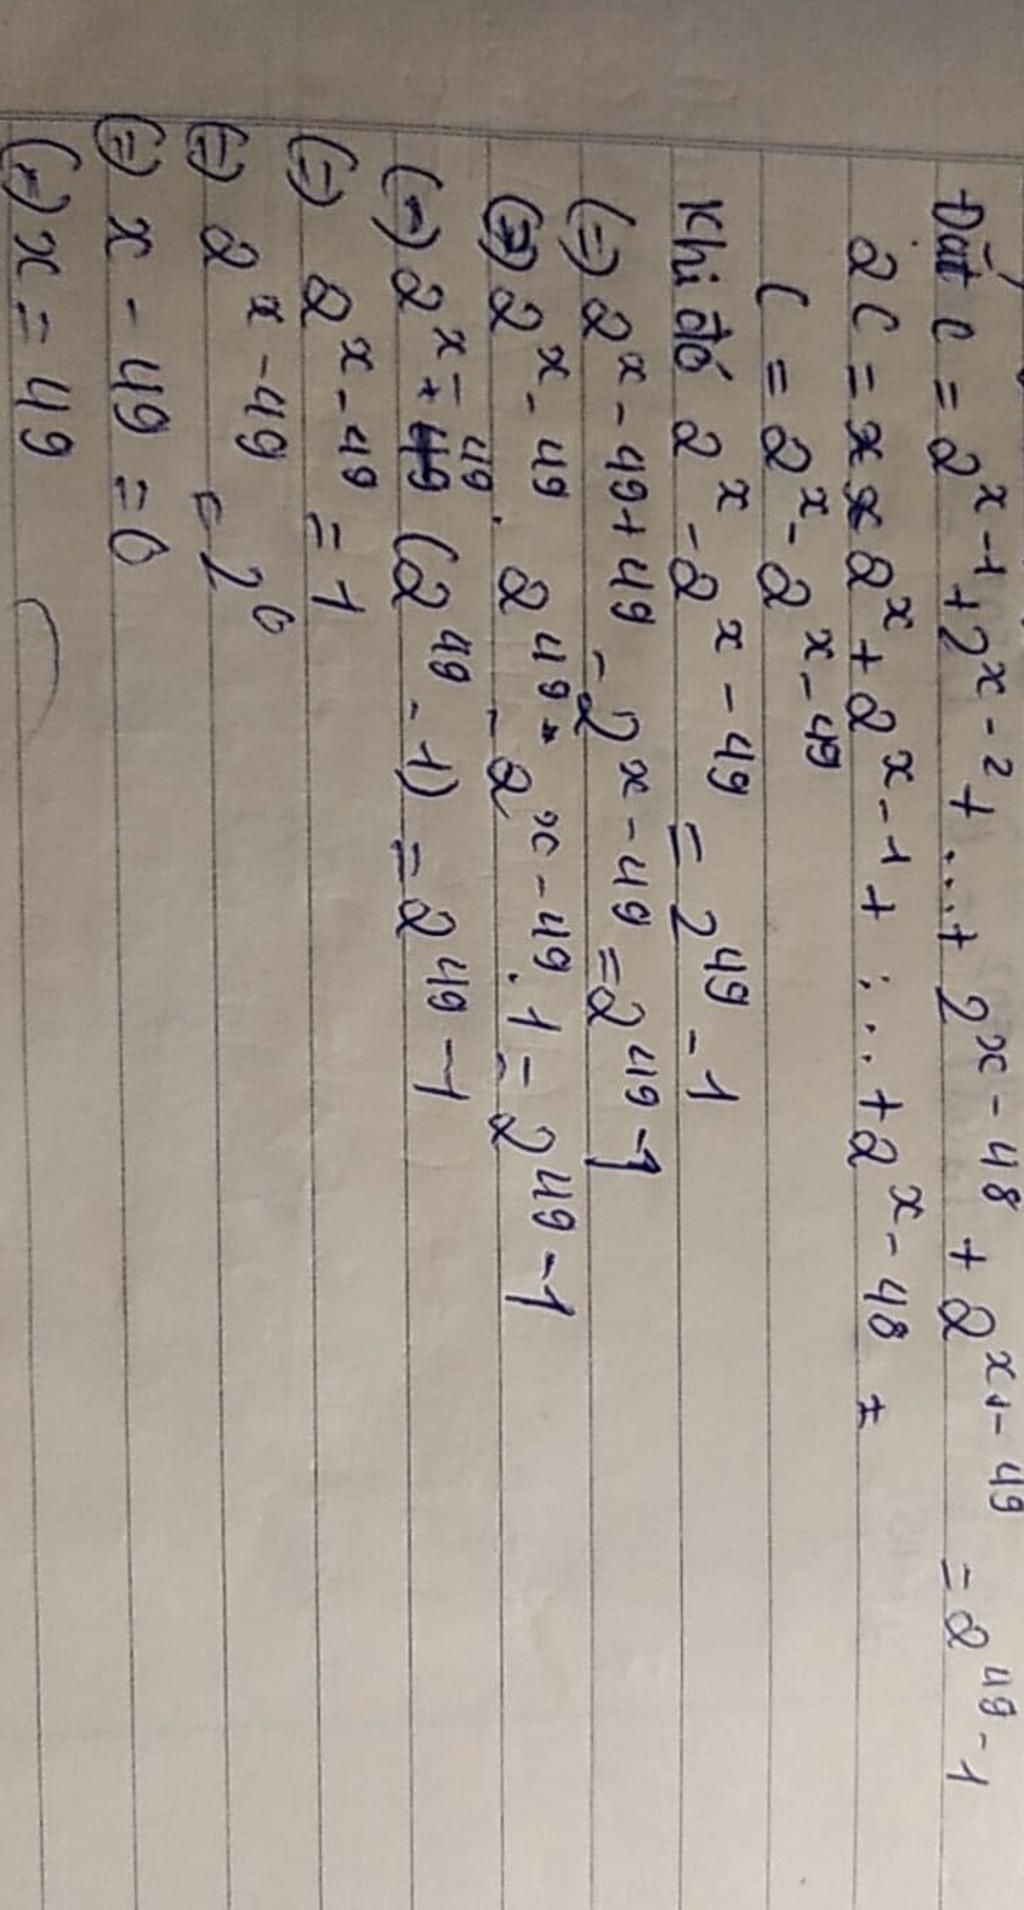 Đặt C = 2^x-1 + 2^x-2 + ... + 2^x-48 + 2^x-49 = 2^49 - 1
2C = 2^x + 2^x-1 + ... + 2^x-48
C = 2^x - 2^x-49
Khi đó 2^x - 2^x-49 = 2^49 - 1
(=) 2^x-49+49 - 2^x-49 = 2^49 - 1
(=) 2^x-49 . 2^49 - 2^x-49 . 1 = 2^49 - 1
(=) 2^x-49 (2^49 - 1) = 2^49 - 1
(=) 2^x-49 = 1
(=) 2^x-49 = 2^0
(=) x - 49 = 0
(=) x = 49